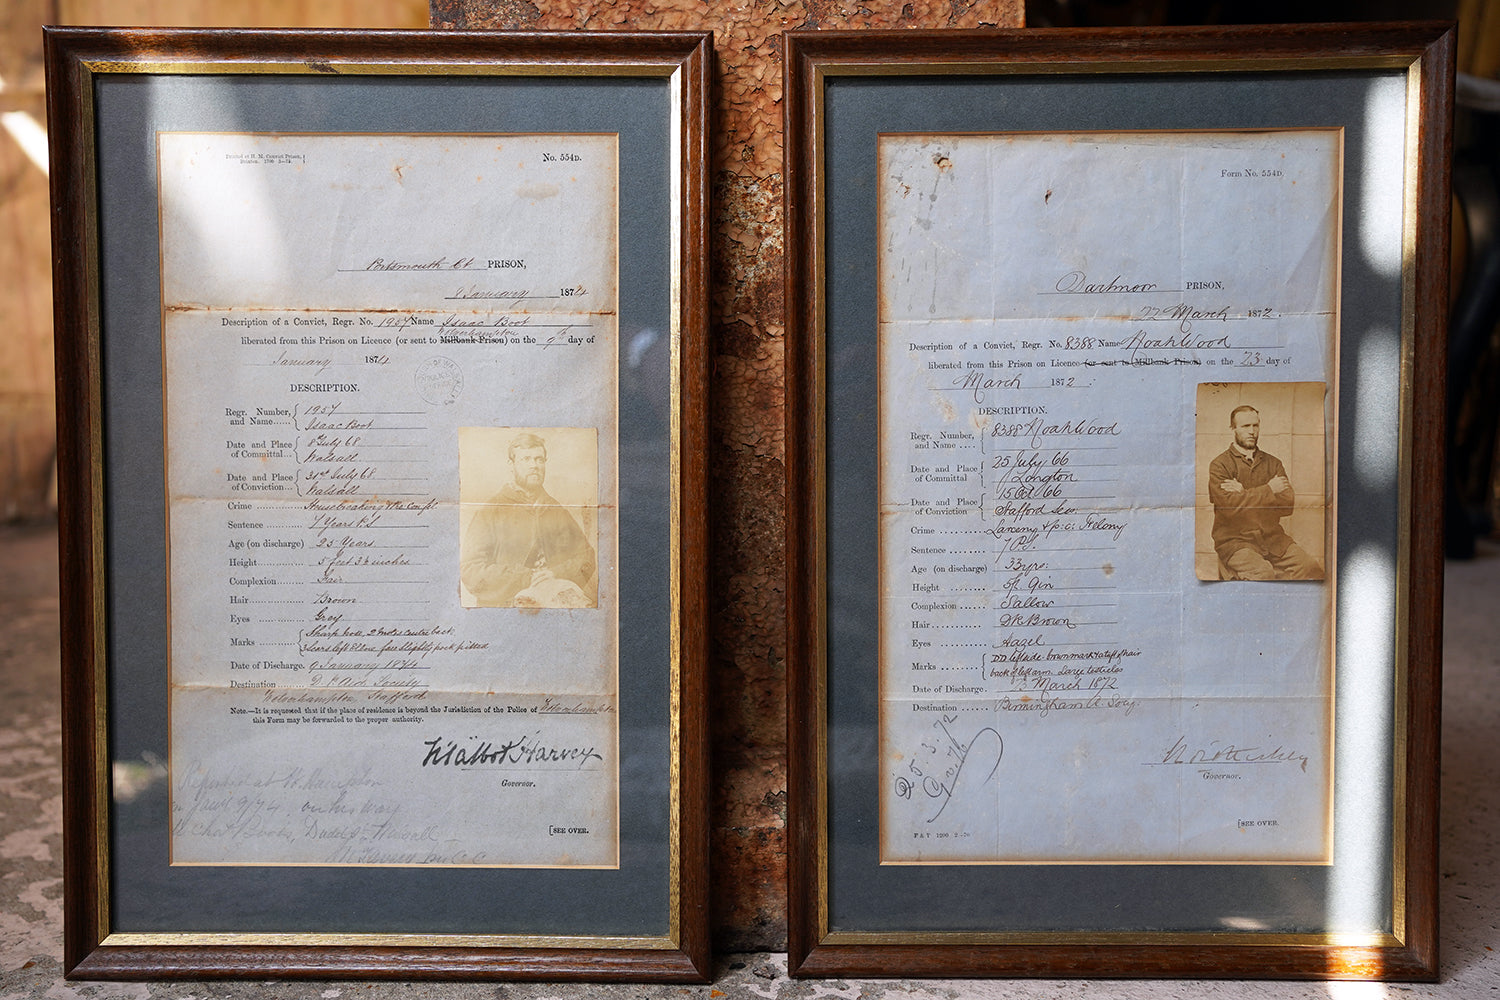 Printed at H. M. Convict Prison,
Brixton. 1200 3—74.
No. 554D.
Portsmouth Ct PRISON,
9 January 1874
Description of a Convict, Regr. No. 1957 Name Isaac Boot
Wolverhampton
liberated from this Prison on Licence (or sent to Millbank Prison) on the 9th day of
January 1874
DESCRIPTION.
Regr. Number, and Name...... { 1957
Isaac Boot
Date and Place of Committal... { 8th July 68
Walsall
Date and Place of Conviction... { 31st July 68
Walsall
Crime Housebreaking &
Sentence 7 Years P.S
Age (on discharge) 25 Years
Height 5 feet 3½ inches
Complexion Fair
Hair Brown
Eyes Grey
Marks { Sharp nose, 2 moles centre back
Scars left Elbow face slightly pock pitted
Date of Discharge. 9 January 1874
Destination D. P. Aid Society
Wolverhampton, Stafford
Note.—It is requested that if the place of residence is beyond the Jurisdiction of the Police of Wolverhampton
this Form may be forwarded to the proper authority.
Talbot Harvey
Governor.
at W.hampton
9/74 on his way
Walsall
[SEE OVER.
Form No. 554D.
Dartmoor PRISON,
22 March 1872.
Description of a Convict, Regr. No. 8388 Name Noah Wood
liberated from this Prison on Licence (or sent to Millbank Prison) on the 23 day of
March 1872.
DESCRIPTION.
Regr. Number, and Name .... { 8388 Noah Wood
Date and Place of Committal { 25 July 66
Longton
Date and Place of Conviction { 15 Oct 66
Stafford Ses.
Crime Larceny & p.c. Felony
Sentence 7 P.S.
Age (on discharge) 33 yrs:
Height 5ft 9in
Complexion Sallow
Hair Dk Brown
Eyes Hazel
Marks { DD left side. brown mark & a tuft of hair
back of left arm. Large testicles
Date of Discharge. 23 March 1872
Destination Birmingham A. Socy.
25.3.72
Governor.
F & T 1200 2-70
[SEE OVER.